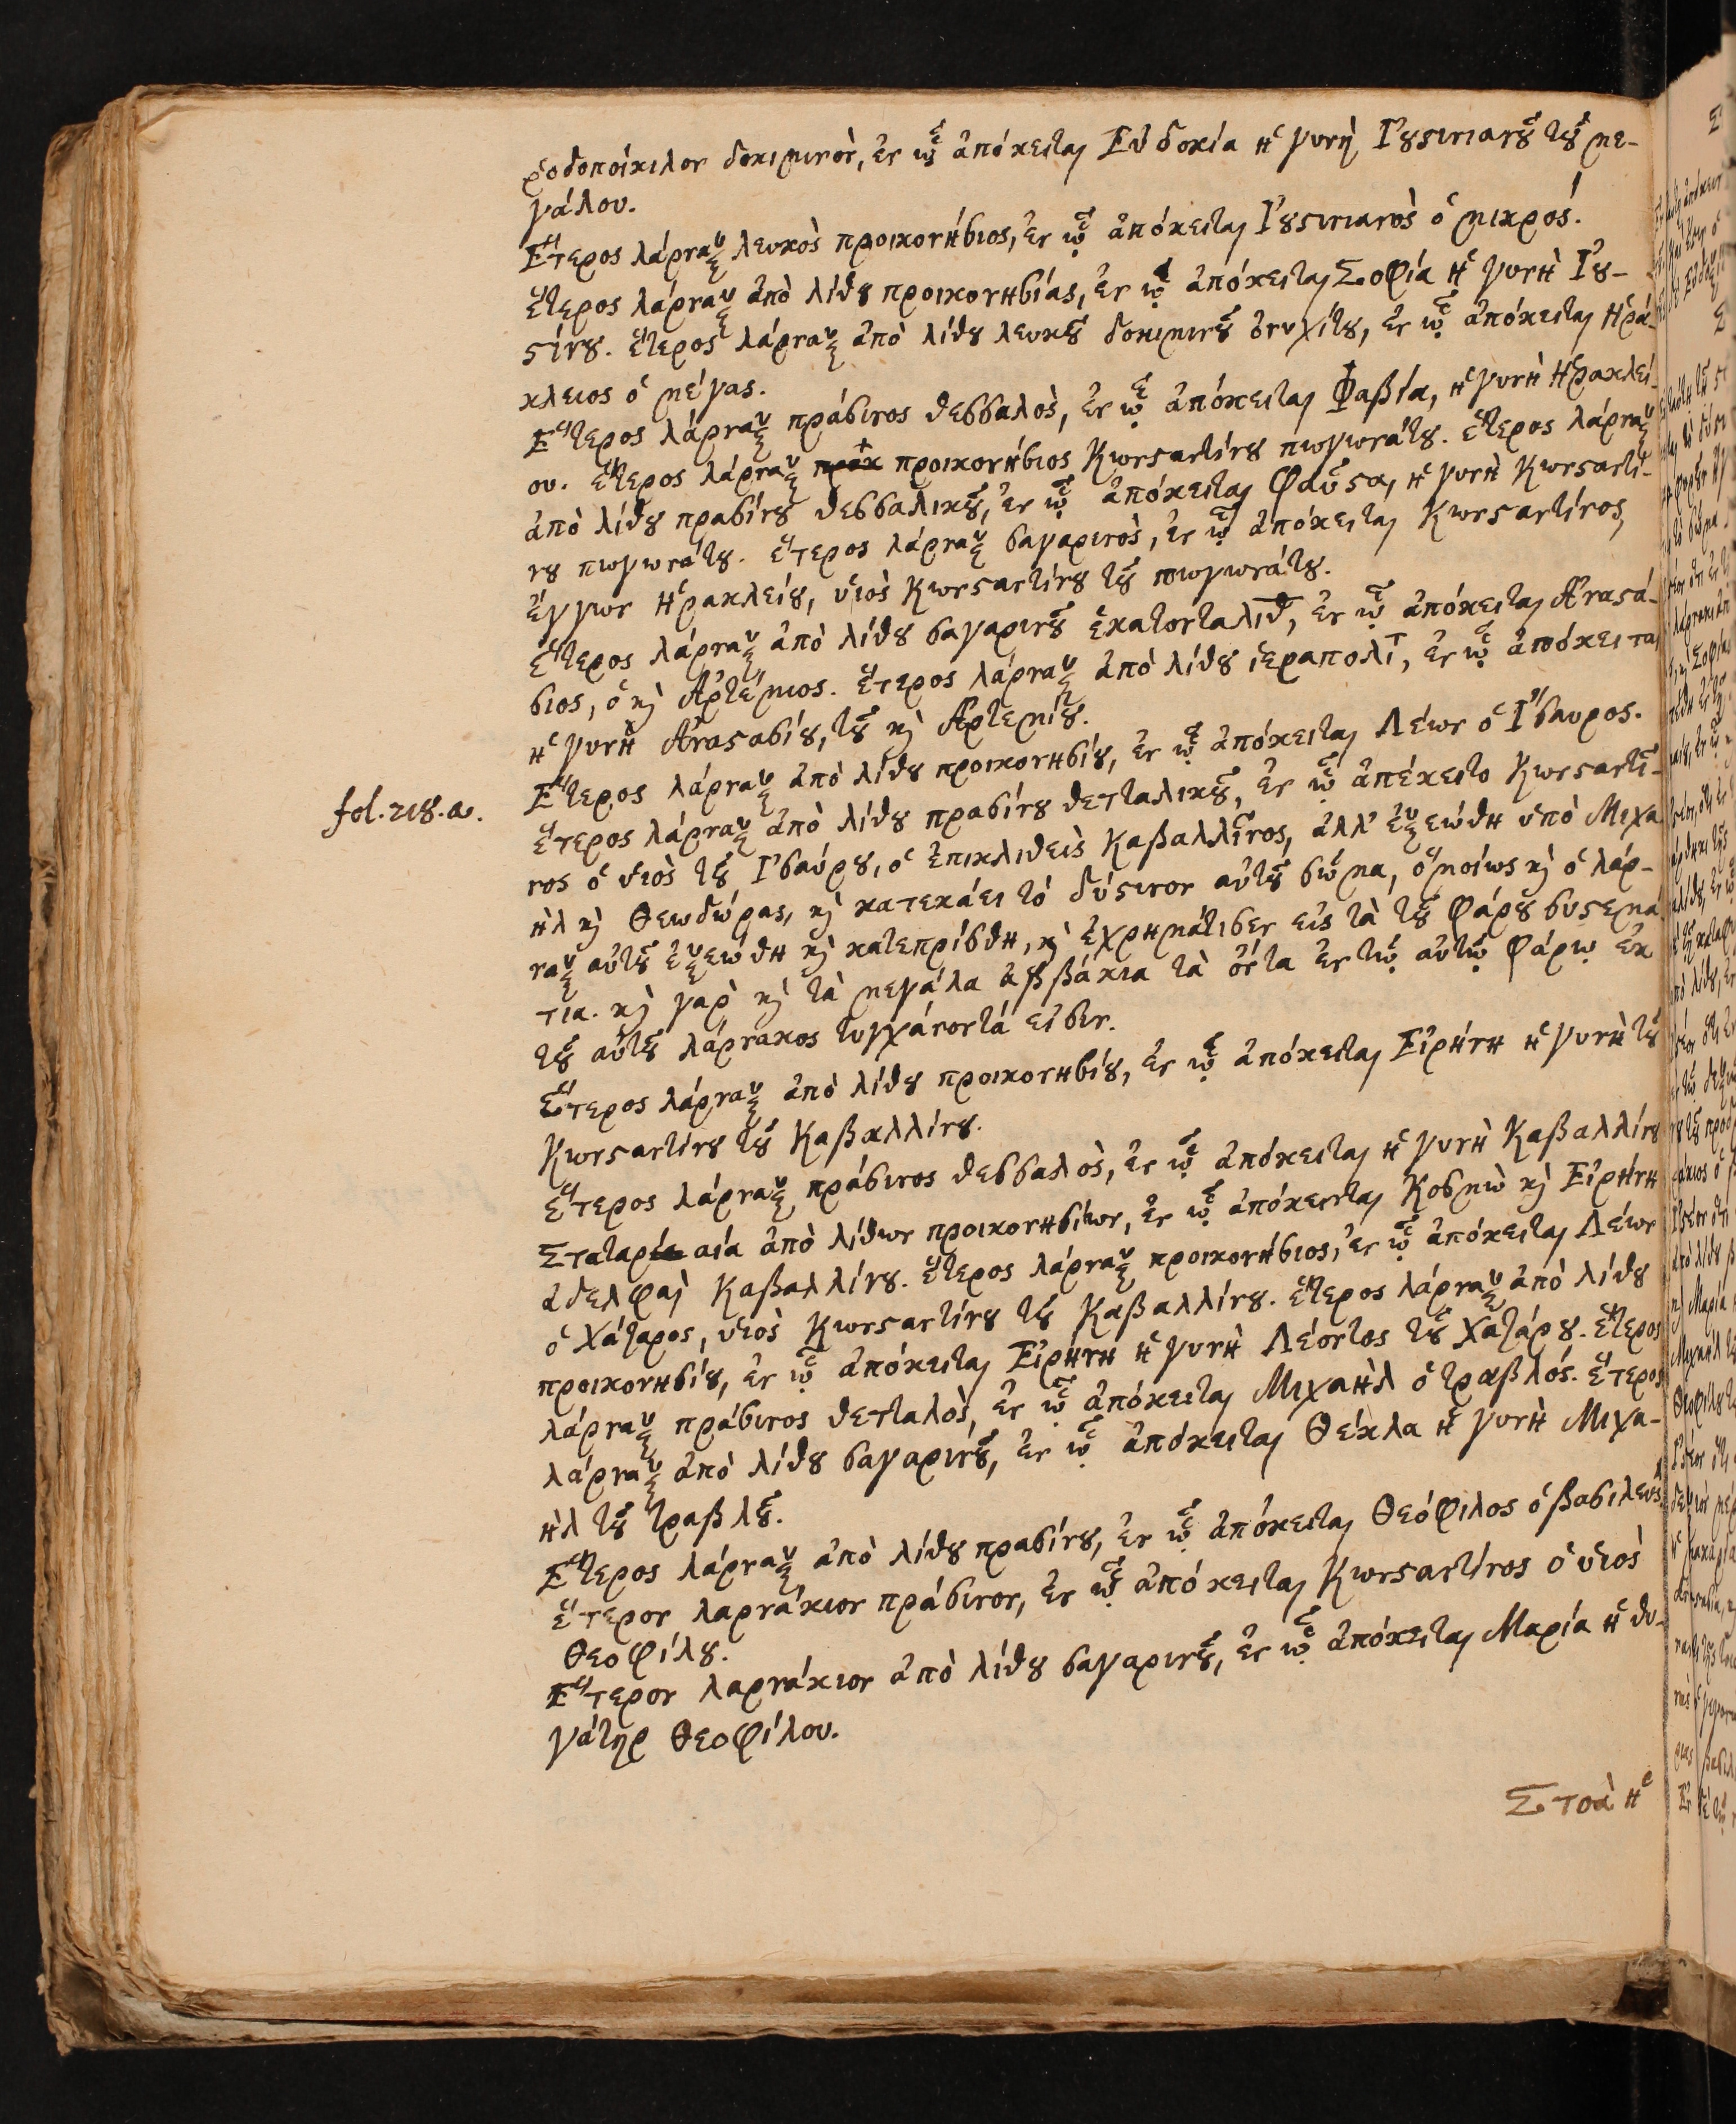 ῥοδοποίκιλον δοκιμινὸν, ἐν ᾧ ἀπόκειται Εὐδοκία ἡ γυνὴ Ἰουστινιανοῦ τοῦ με-
γάλου.
Ἕτερος λάρναξ λευκὸς προικονήσιος, ἐν ᾧ ἀπόκειται Ἰουστινιανὸς ὁ μικρός.
ἕτερος λάρναξ ἀπὸ λίθου προικονησίας, ἐν ᾧ ἀπόκειται Σοφία ἡ γυνὴ Ἰου-
στίνου. ἕτερος λάρναξ ἀπὸ λίθου λευκοῦ δοκιμινοῦ ὀνυχίτου, ἐν ᾧ ἀπόκειται Ἡρά-
κλειος ὁ μέγας.
Ἕτερος λάρναξ πράσινος θεσσαλὸς, ἐν ᾧ ἀπόκειται Φαβία, ἡ γυνὴ Ἡρακλεί-
ου. ἕτερος λάρναξ προικονήσιος Κωνσταντίνου πωγωνάτου. ἕτερος λάρναξ
ἀπὸ λίθου πρασίνου θεσσαλικοῦ, ἐν ᾧ ἀπόκειται Φαῦστα, ἡ γυνὴ Κωνσταντί-
νου πωγωνάτου. ἕτερος λάρναξ σαγαρινὸς, ἐν ᾧ ἀπόκειται Κωνσταντῖνος,
ἔγγων Ἡρακλείου, υἱὸς Κωνσταντίνου τοῦ πωγωνάτου.
ἕτερος λάρναξ ἀπὸ λίθου σαγαρινοῦ ἑκατονταλιθ, ἐν ᾧ ἀπόκειται Ἀναστά-
σιος, ὁ καὶ Ἀρτέμιος. ἕτερος λάρναξ ἀπὸ λίθου ἱεραπολίτ, ἐν ᾧ ἀπόκειται
ἡ γυνὴ Ἀναστασίου, τοῦ καὶ Ἀρτεμίου.
Ἕτερος λάρναξ ἀπὸ λίθου προικονησίου, ἐν ᾧ ἀπόκειται Λέων ὁ Ἴσαυρος.
fol. 218. a. ἕτερος λάρναξ ἀπὸ λίθου πρασίνου θετταλικοῦ, ἐν ᾧ ἀπέκειτο Κωνσταντῖ-
νος ὁ υἱὸς τοῦ Ἰσαύρου, ὁ ἐπικλιθεὶς Καβαλλῖνος, ἀλλ' ἐξεώθη ὑπὸ Μιχα
ὴλ καὶ Θεωδώρας, καὶ κατεκάει τό δύστινον αὐτοῦ σῶμα, ὁμοίως καὶ ὁ λάρ-
ναξ αὐτοῦ ἐξεώθη καὶ κατεπρίσθη, καὶ ἐχρημάτισεν εἰς τὰ τοῦ Φάρου συστεμά
τια. καὶ γαρ καὶ τὰ μεγάλα ἀββάκια τὰ ὄντα ἐν τῷ αὐτῷ Φάρῳ ἐκ
τοῦ αὐτοῦ λάρνακος τυγχάνοντά εἰσιν.
Ἕτερος λάρναξ ἀπὸ λίθου προικονησίου, ἐν ᾧ ἀπόκειται Εἰρήνη ἡ γυνὴ τοῦ
Κωνσταντίνου τοῦ Καβαλλίνου.
ἕτερος λάρναξ πράσινος θεσσαλὸς, ἐν ᾧ ἀπόκειται ἡ γυνὴ Καβαλλίνου
Σταταρία αία ἀπὸ λίθων προικονησίων, ἐν ᾧ ἀπόκεινται Κοσμὼ καὶ Εἰρήνη
ἀδελφαὶ Καβαλλίνου. ἕτερος λάρναξ προικονήσιος, ἐν ᾧ ἀπόκειται Λέων
ὁ Χάζαρος, υἱὸς Κωνσταντίνου τοῦ Καβαλλίνου. ἕτερος λάρναξ ἀπὸ λίθου
προικονησίου, ἐν ᾧ ἀπόκειται Εἰρήνη ἡ γυνὴ Λέοντος τοῦ Χαζάρου. ἕτερος
λάρναξ πράσινος θετταλὸς, ἐν ᾧ ἀπόκειται Μιχαὴλ ὁ τραβλός. ἕτερος
λάρναξ ἀπὸ λίθου σαγαρινοῦ, ἐν ᾧ ἀπόκειται Θέκλα ἡ γυνὴ Μιχα-
ὴλ τοῦ τραβλοῦ.
Ἕτερος λάρναξ ἀπὸ λίθου πρασίνου, ἐν ᾧ ἀπόκειται Θεόφιλος ὁ βασιλεύς.
ἕτερον λαρνάκιον πράσινον, ἐν ᾧ ἀπόκειται Κωνσταντῖνος ὁ υἱὸς
Θεοφίλου.
Ἕτερον λαρνάκιον ἀπὸ λίθου σαγαρινοῦ, ἐν ᾧ ἀπόκειται Μαρία ἡ θυ-
γάτηρ Θεοφίλου.
Στοὰ ἡ